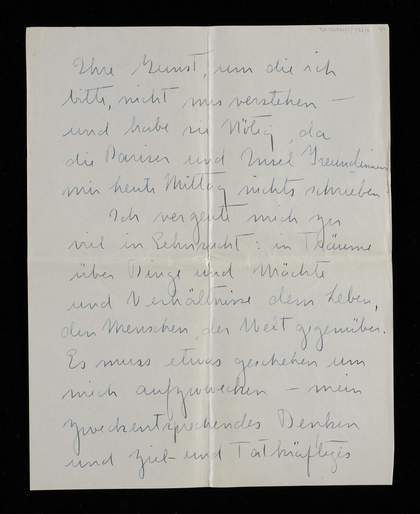 Ihre Gunst, um die ich
bitte, nicht missverstehen –
und habe sie Nötig, da
die Pariser und Insel Freundinnen
mir heute Mittag nichts schrieben
Ich vergeute mich zu
viel in Sehnsucht: in Träume
über Dinge und Mächte
und Verhältnisse dem Leben,
den Menschen, der Welt gegenüber.
Es muss etwas geschehen um
mich aufzuwecken – mein
zweckentsprechendes Denken
und Ziel- und Tatkräftiges